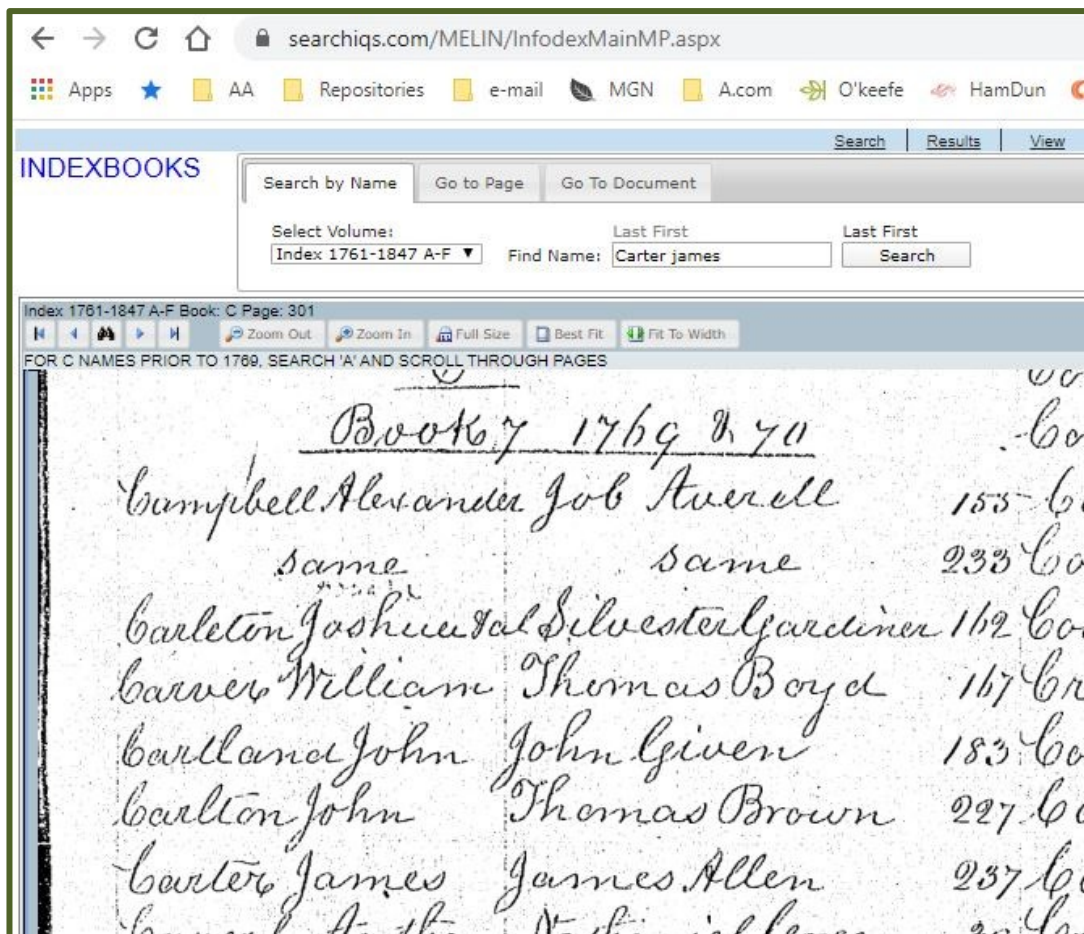 searchiqs.com/MELIN/InfodexMainMP.aspx
Apps AA Repositories e-mail MGN A.com O'keefe HamDun
Search Results View
INDEXBOOKS
Search by Name Go to Page Go To Document
Select Volume: Last First Last First
Index 1761-1847 A-F Find Name: Carter james Search
Index 1761-1847 A-F Book: C Page: 301
Zoom Out Zoom In Full Size Best Fit Fit To Width
FOR C NAMES PRIOR TO 1769, SEARCH 'A' AND SCROLL THROUGH PAGES
C
Book 7 1769 & 70
Campbell Alexander Job Averell 155
same same 233
Carleton Joshua & al Silvester Gardiner 162
Carver William Thomas Boyd 167
Cartland John John Given 183
Carlton John Thomas Brown 227
Carter James James Allen 237